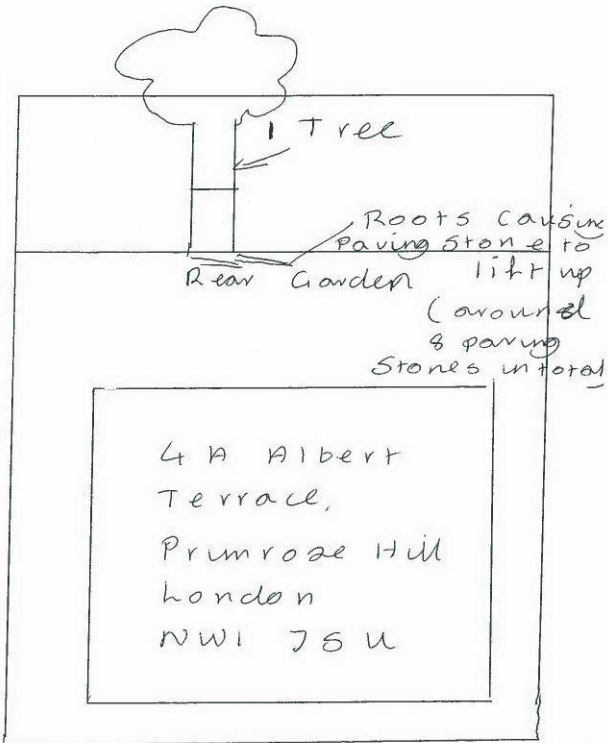 1 Tree
Roots causing
paving stone to
lift up
(around
8 paving
stones in total
Rear Garden
4A Albert
Terrace,
Primrose Hill
London
NW1 7SU